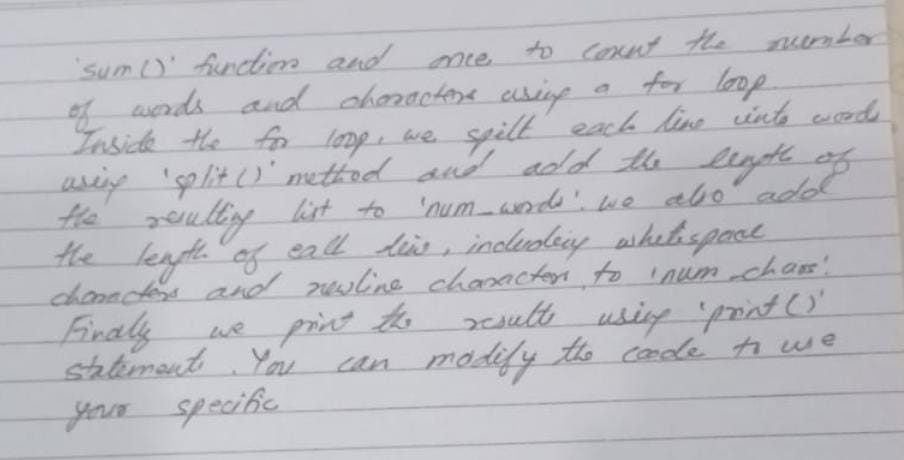 'sum()' function and once to count the number
of words and characters using a for loop.
Inside the for loop, we spilt each line into words
using 'split()' method and add the length of
the resulting list to 'num_words'. we also add
the length of eall line, including whitespace
characters and newline characters, to 'num_chars'.
Finally we print the results using 'print()'
statement. You can modify the coode to use
your specific